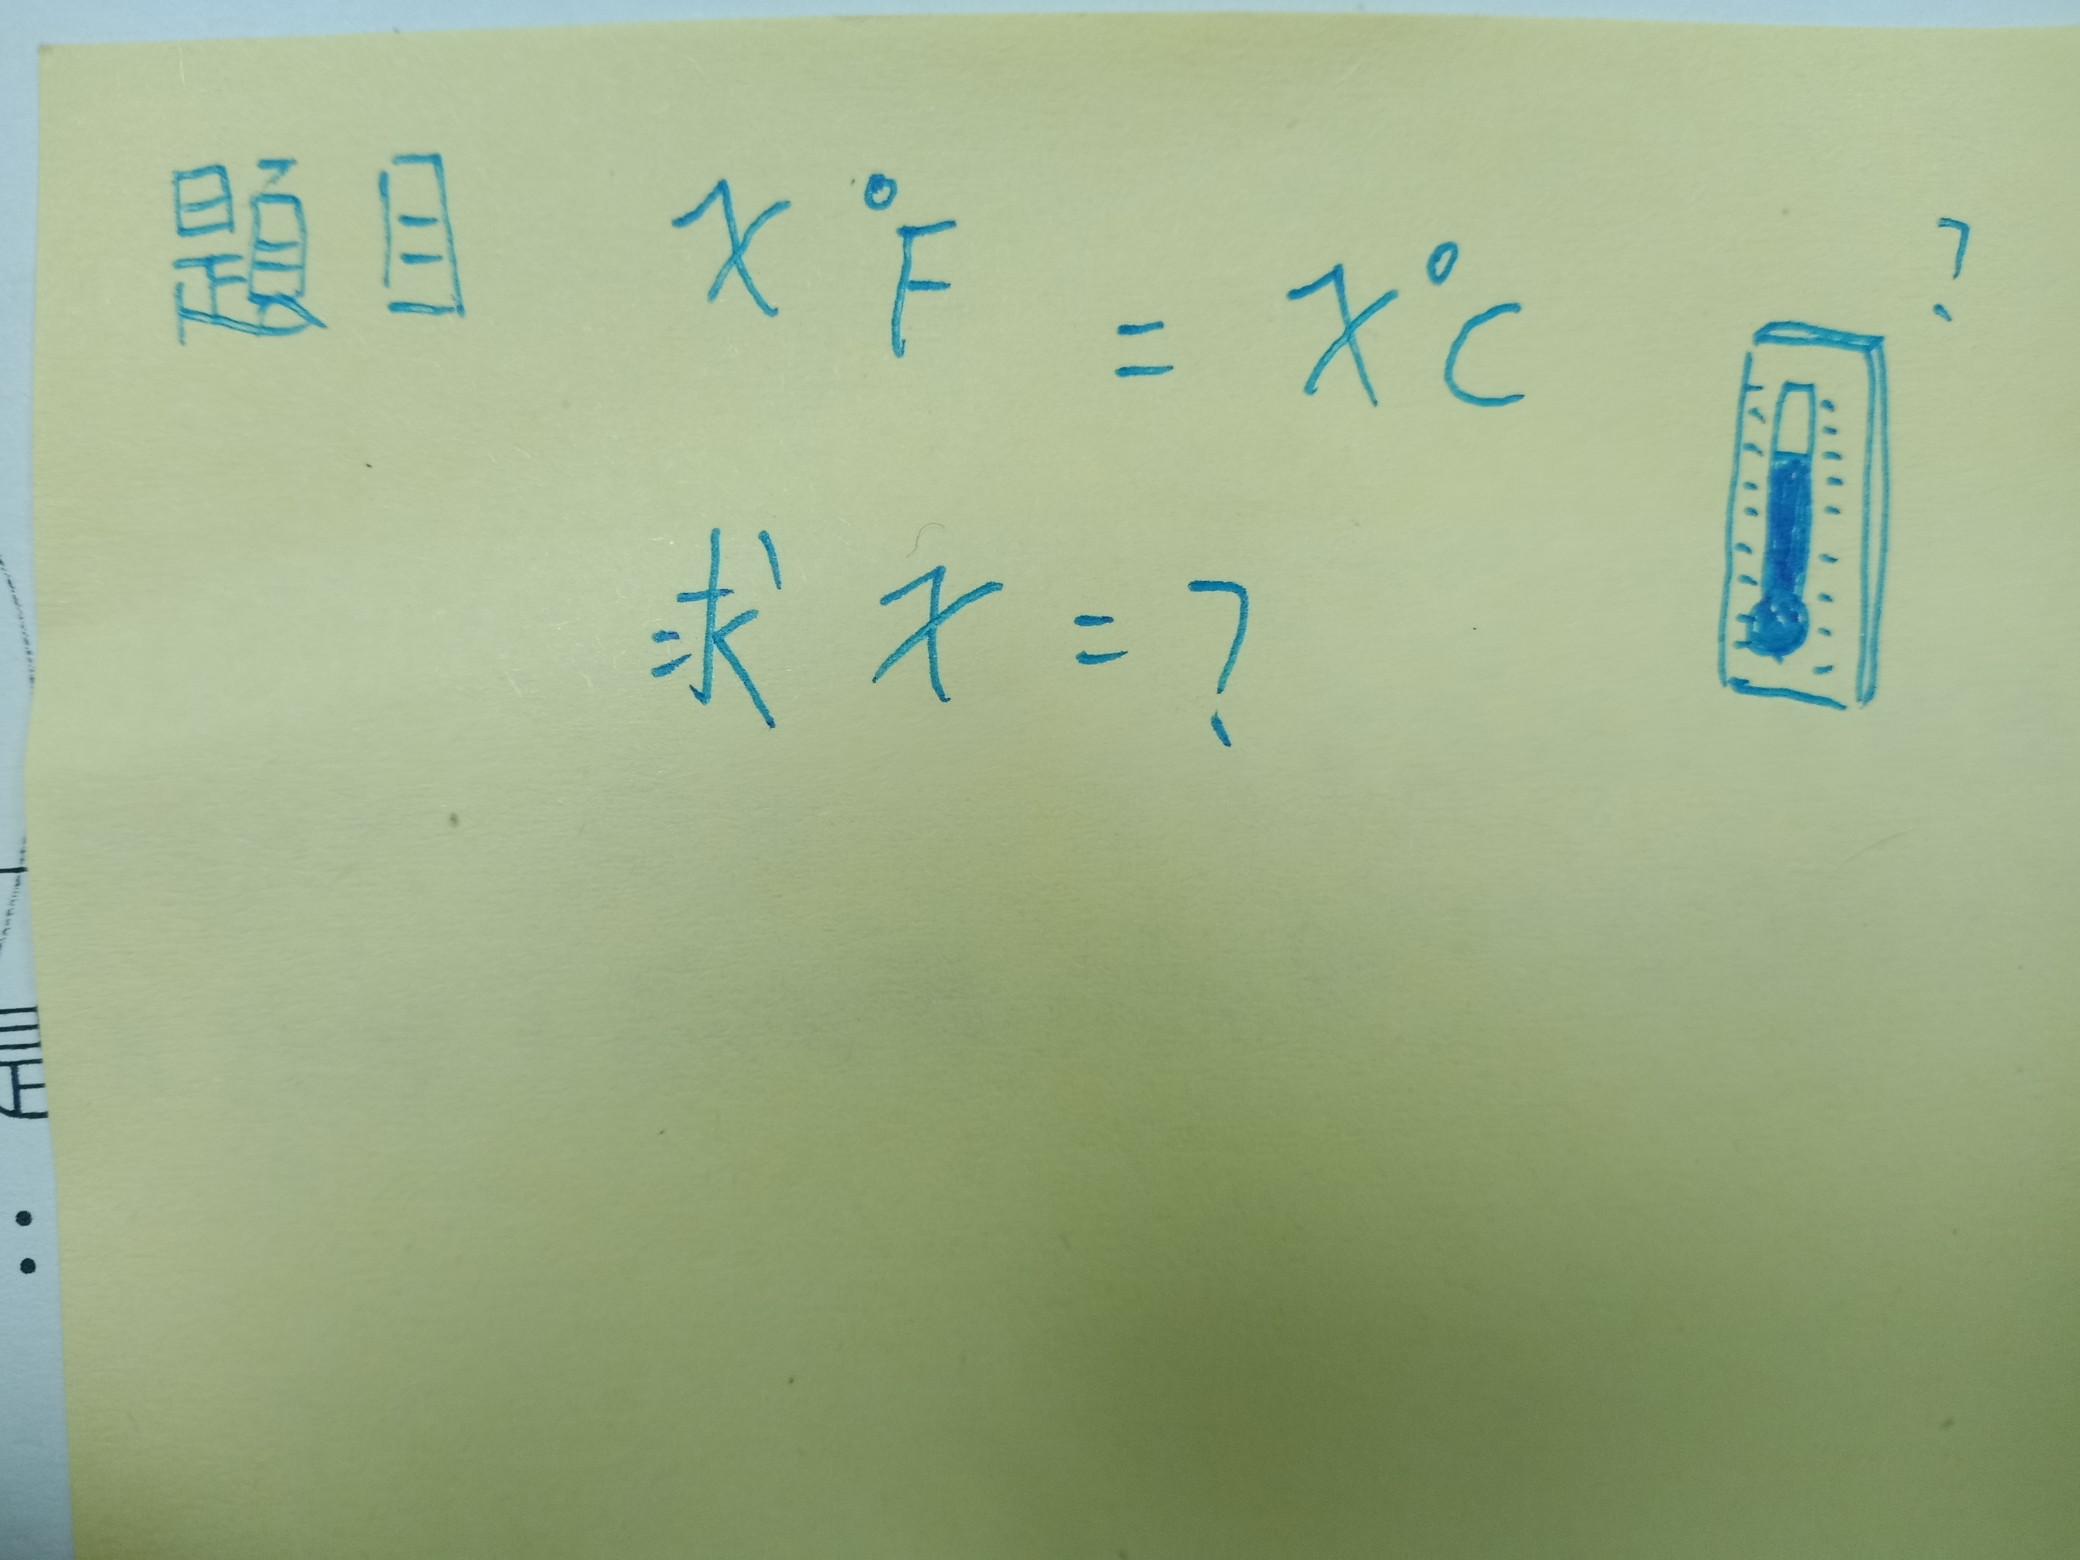 題目 x °F = x °C ?
求 x = ?